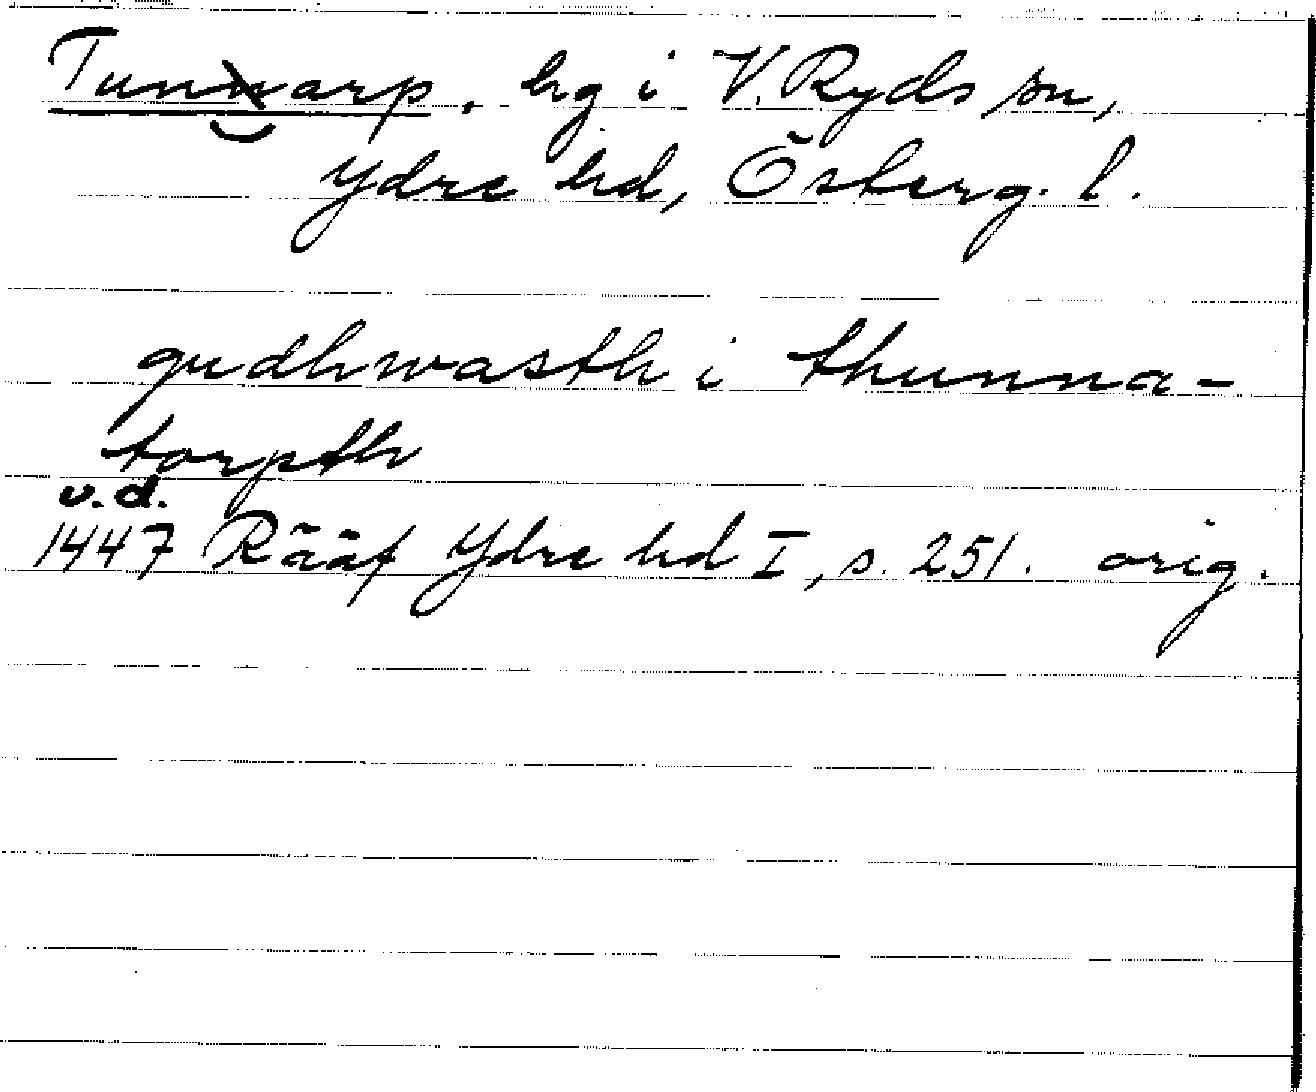 Tunnarp, hg i V. Ryds sn,
Ydre hd, Österg. l.
gudhwasth i thunna-
torpth
v.d.
1447 Rääf Ydre hd I, s. 251. orig.